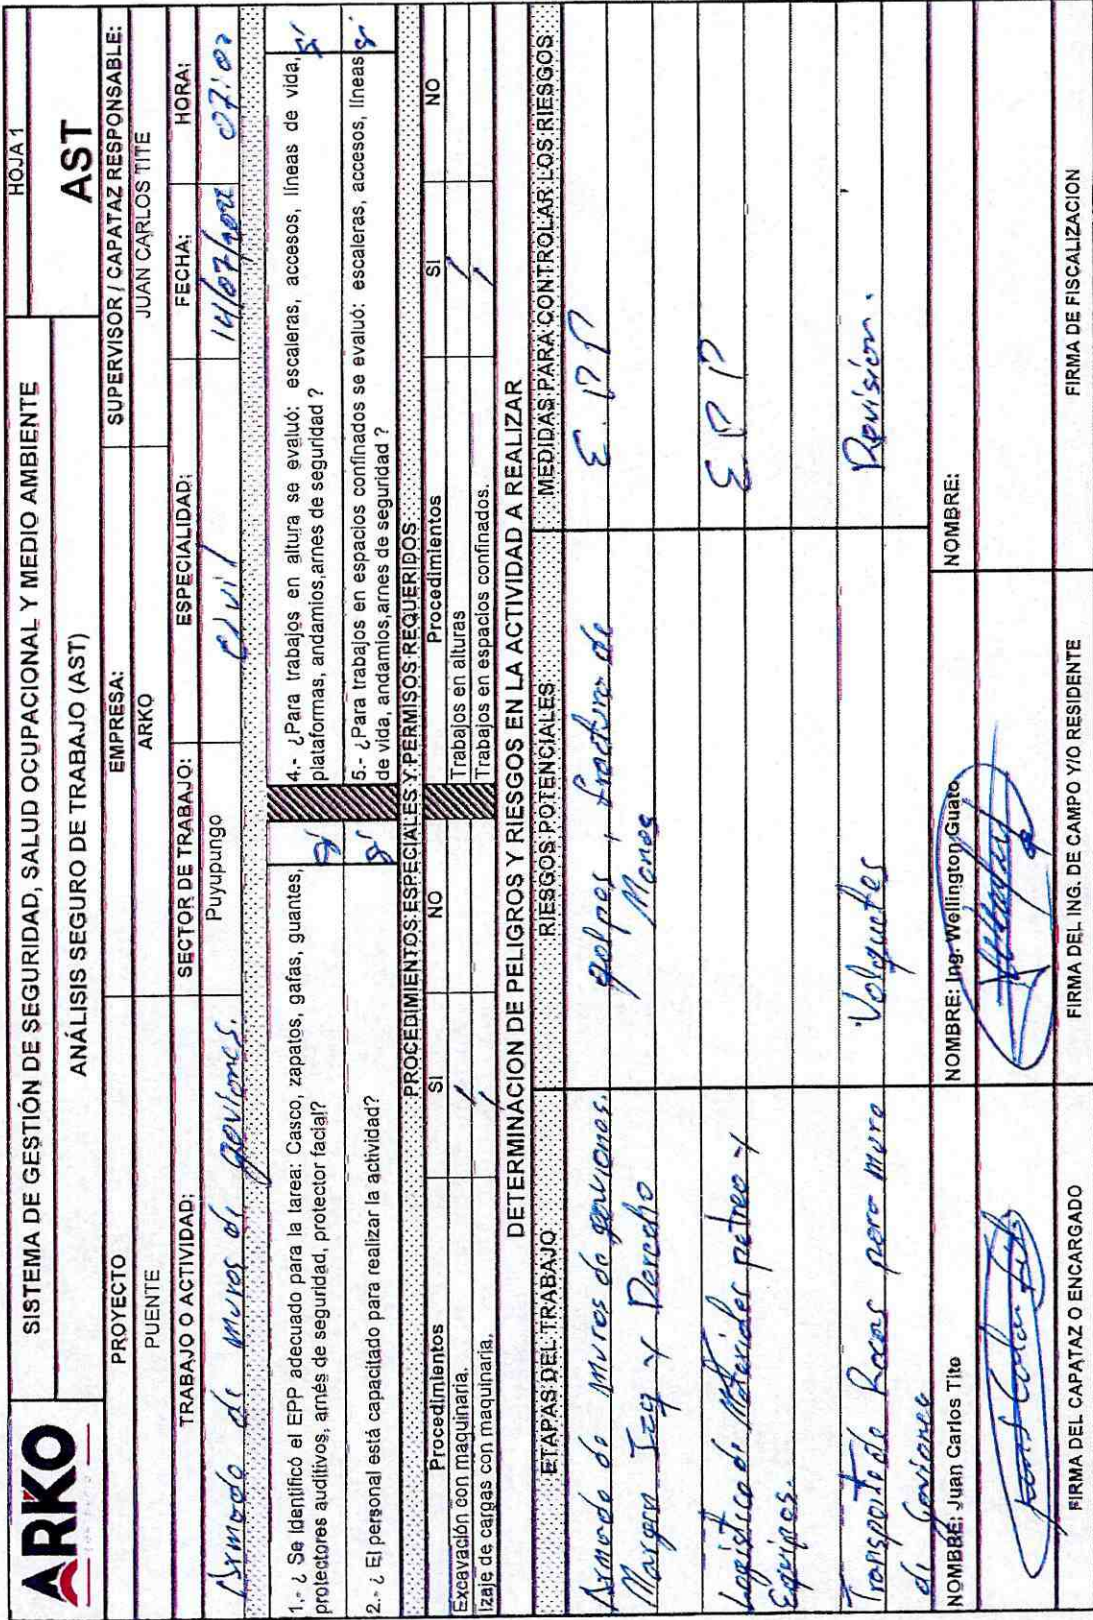 ARKO
SISTEMA DE GESTIÓN DE SEGURIDAD, SALUD OCUPACIONAL Y MEDIO AMBIENTE
HOJA 1
ANÁLISIS SEGURO DE TRABAJO (AST)
AST
PROYECTO
EMPRESA:
SUPERVISOR / CAPATAZ RESPONSABLE:
PUENTE
ARKO
JUAN CARLOS TITE
TRABAJO O ACTIVIDAD:
SECTOR DE TRABAJO:
ESPECIALIDAD:
FECHA:
HORA:
Armado de muros de gaviones.
Puyupungo
Civil
14/07/2022
07:00
1.- ¿ Se identificó el EPP adecuado para la tarea: Casco, zapatos, gafas, guantes,
protectores auditivos, arnés de seguridad, protector facial?
si
4.- ¿Para trabajos en altura se evaluó: escaleras, accesos, líneas de vida,
plataformas, andamios,arnes de seguridad ?
si
2.- ¿ El personal está capacitado para realizar la actividad?
si
5.- ¿Para trabajos en espacios confinados se evaluó: escaleras, accesos, líneas
de vida, andamios,arnes de seguridad ?
si
PROCEDIMIENTOS ESPECIALES Y PERMISOS REQUERIDOS
Procedimientos
SI
NO
Procedimientos
SI
NO
Excavación con maquinaria.
/
Trabajos en alturas
/
Izaje de cargas con maquinaria.
/
Trabajos en espacios confinados.
/
DETERMINACION DE PELIGROS Y RIESGOS EN LA ACTIVIDAD A REALIZAR
ETAPAS DEL TRABAJO
RIESGOS POTENCIALES
MEDIDAS PARA CONTROLAR LOS RIESGOS
Armado de muros de gaviones.
golpes, fractura de
E.P.P
Margen Izq y Derecho
Manos
Logistica de Materiales petreo y
E P P
Equipos.
Transporte de Rocas para muro
Volquetes
Revision.
de Gaviones
NOMBRE: Juan Carlos Tite
NOMBRE: Ing. Wellington Guato
NOMBRE:
FIRMA DEL CAPATAZ O ENCARGADO
FIRMA DEL ING. DE CAMPO Y/O RESIDENTE
FIRMA DE FISCALIZACION